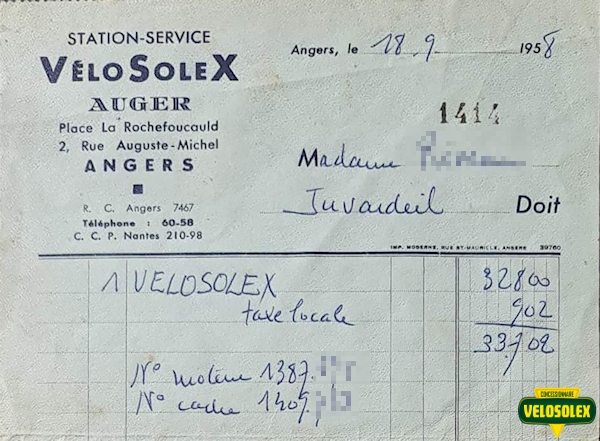 STATION-SERVICE
VÉLOSOLEX
AUGER
Place La Rochefoucauld
2, Rue Auguste-Michel
ANGERS
R. C. Angers 7467
Téléphone : 60-58
C. C. P. Nantes 210-98
Angers, le 18.9 1958
1414
Madame
Juvardeil Doit
IMP. MODERNE, RUE ST-MAURILLE, ANGERS 39760
1 VELOSOLEX 32800
taxe locale 902
33702
N° moteur 1387.
N° cadre 1409.
CONCESSIONNAIRE
VELOSOLEX